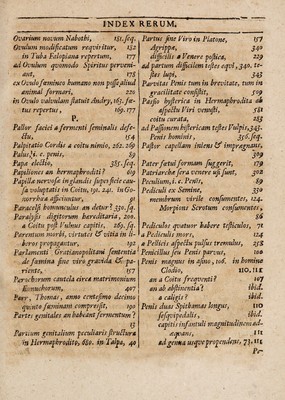 INDEX RERUM.
Ovarium novum Nabothi, 151. seq.
Ovulum modificatum requiritur, 152
in Tuba Falopiana repertum, 177
ad Ovulum quomodo Spiritus perveniant, 178
ex Ovulo fœmineo humano non possẽ aliud
animal formari, 220
in Ovulo vulvulam statuit Andry, 165. fœtus
repertus, 169. 177
P.
Pallor faciei a fermenti seminalis defectu,
154
Palpitatio Cordis a coitu nimio, 262. 269
Palus, i. e. penis, 59
Papa electio, 385. seq.
Papiliones an hermaphroditi? 69
Papillæ nervosæ in glandis superficie causa
voluptatis in Coitu, 191. 241. in Gonorrhœa
afficiuntur, 91
Paracelsi homunculus an detur? 330. sq.
Paralysis digitorum hereditaria, 200.
a Coitu post Vulnus capitis, 269. sq.
Parentum morbi, virtutes & vitia in liberos
propagantur, 192
Parlamenti Gratianopolitani sententia
de fœmina sine viro gravida & pariente,
157
Parochorum cautela circa matrimonium
Eunuchorum, 407
Parr, Thomas, anno centesimo decimo
quinto fœminam compressit, 190
Partes genitales an habeant fermentum?
13
Partium genitalium peculiaris structura
in Hermaphrodito, 680. in Talpa, 40
Partus sine Viro in Platone, 157
Agrippa, 340
difficilis a Venere postica, 229
ad partum difficilem testes equi, 340. testes
lupi, 345
Parvitas Penis tum in brevitate, tum in
gracilitate consistit, 509
Passio hysterica in Hermaphrodita ad
aspectu Viri venusti, 531
coitu curata, 283
ad Passionem hystericam testes Vulpis, 345.
Penis hominis, 356. seq.
Pastor capellam iniens & imprægnans,
309
Pater fœtui formam suggerit, 179
Patriarchæ sera venere usi sunt, 302
Peculium, i. e. Penis, 59
Pediculi ex Semine, 330
membrum virile consumentes, 124.
Morpiones Scrotum consumentes,
86
Pediculos quatuor habere testiculos, 71
a Pediculis mors, 124
a Pellicis aspectu pulsus tremulus, 258
Penicillus seu Penis parvus, 100
Penis magnus in asino, 108. in homine
Clodio, 110. 111
an a Coitu frequenti? 107
an ab abstinentia? ibid.
a caligis? ibid.
Penis duas Spithamas longus, 110
sesquipedalis, ibid.
capitis infantuli magnitudinem adæquans,
111
ad genua usque propendens, 73. 111
Pe-